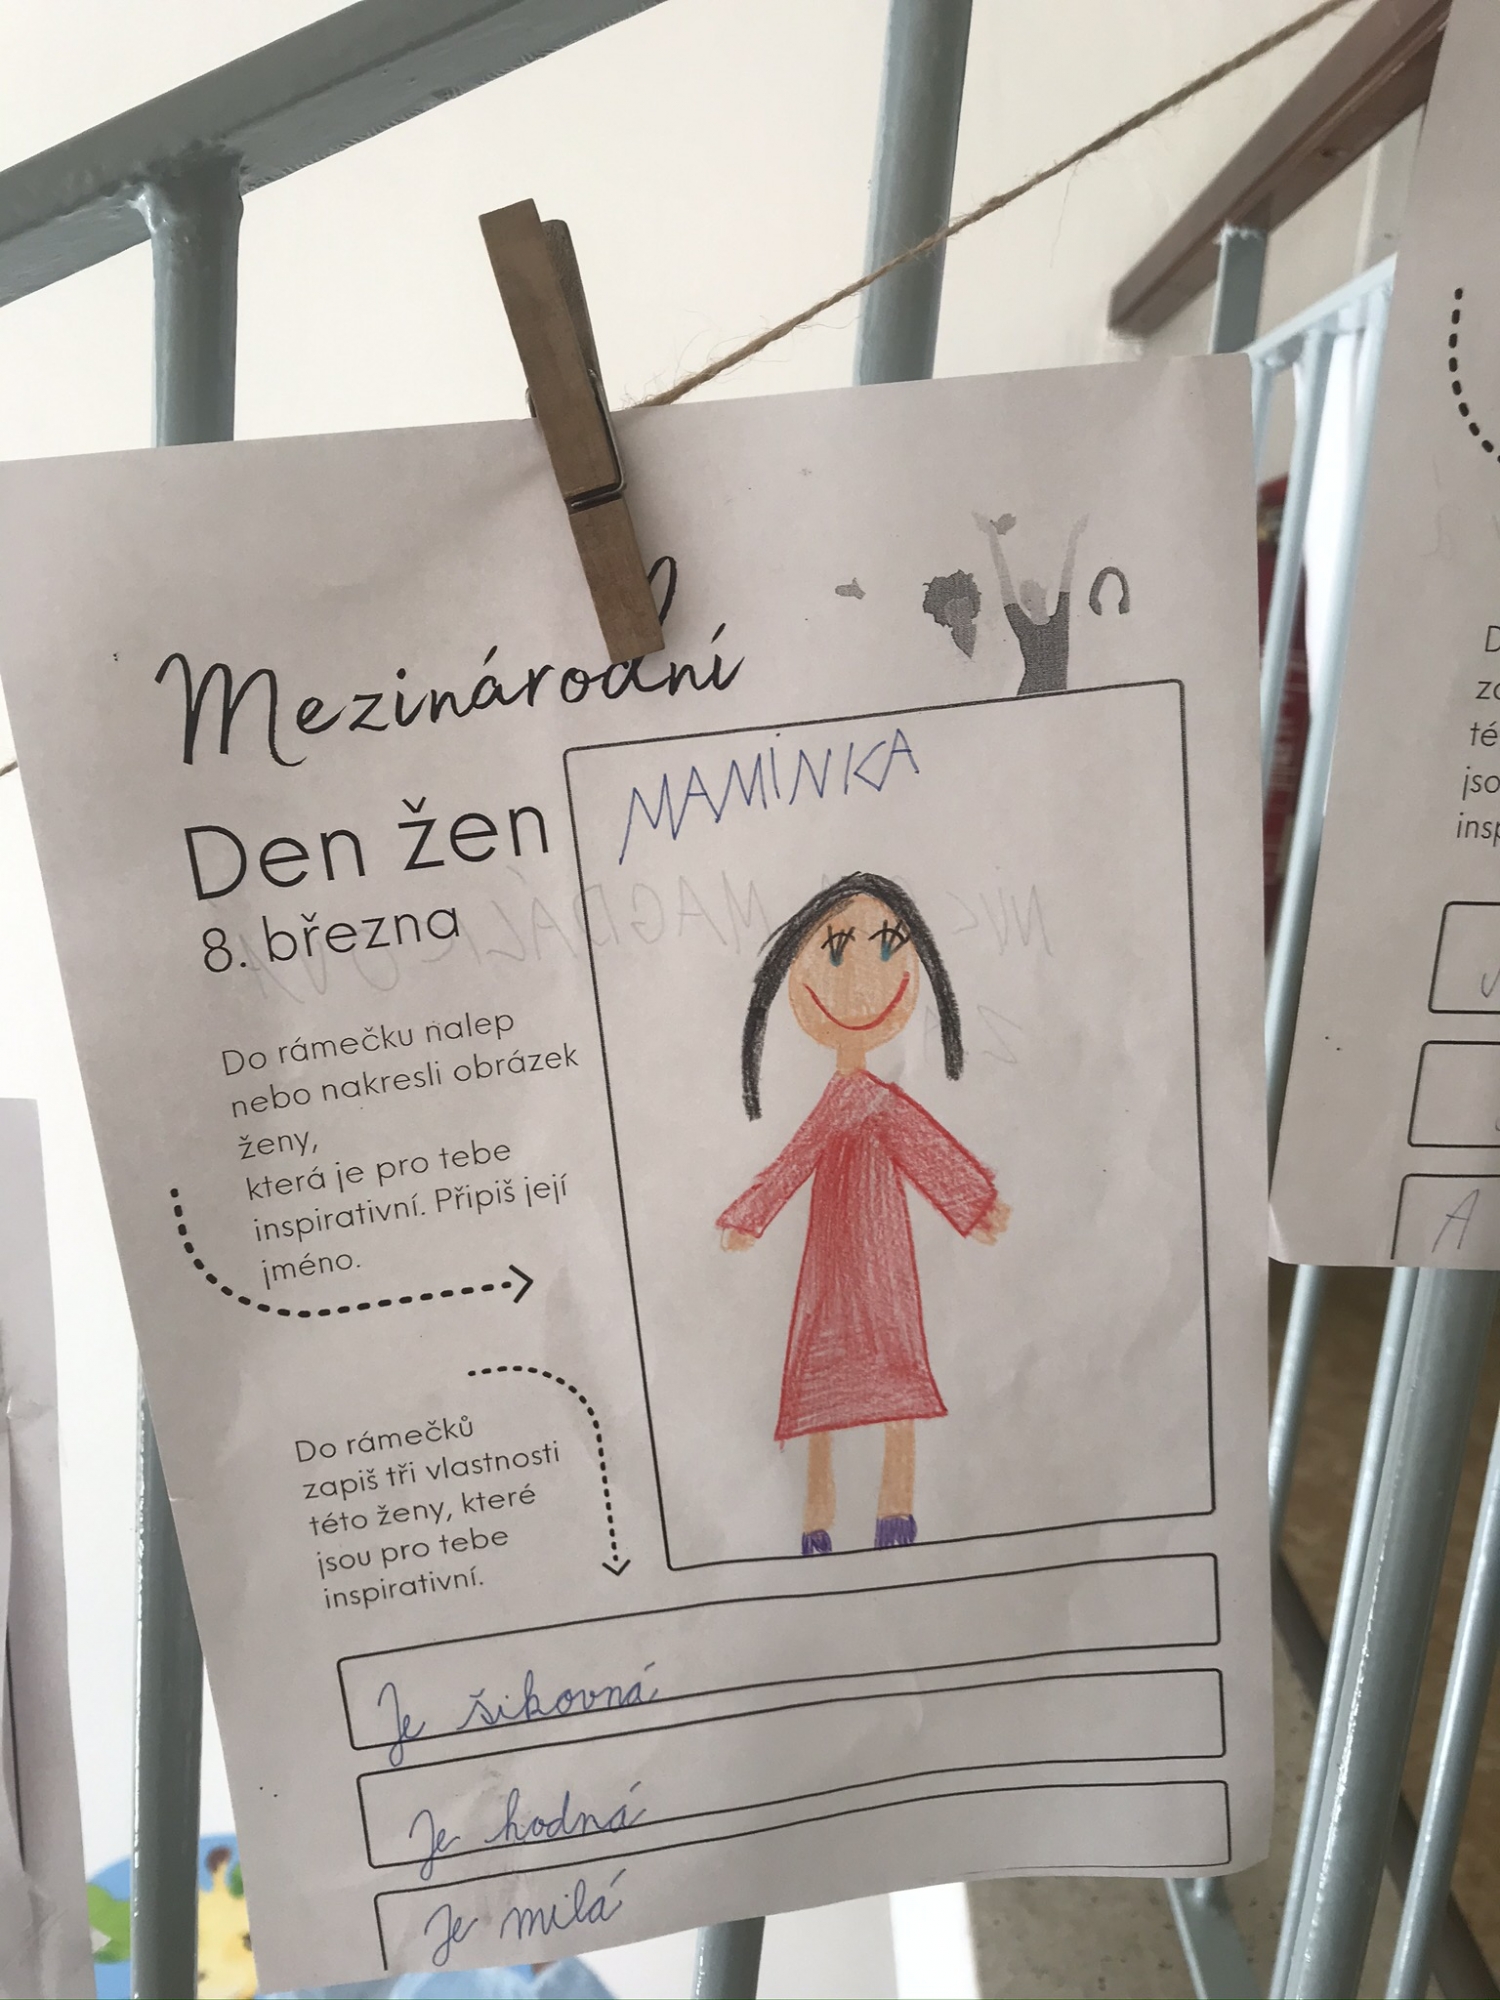 Mezinárodní
Den žen
8. března
Do rámečku nalep
nebo nakresli obrázek
ženy,
která je pro tebe
inspirativní. Připiš její
jméno.
MAMINKA
Do rámečků
zapiš tři vlastnosti
této ženy, které
jsou pro tebe
inspirativní.
Je šikovná
Je hodná
Je milá
A